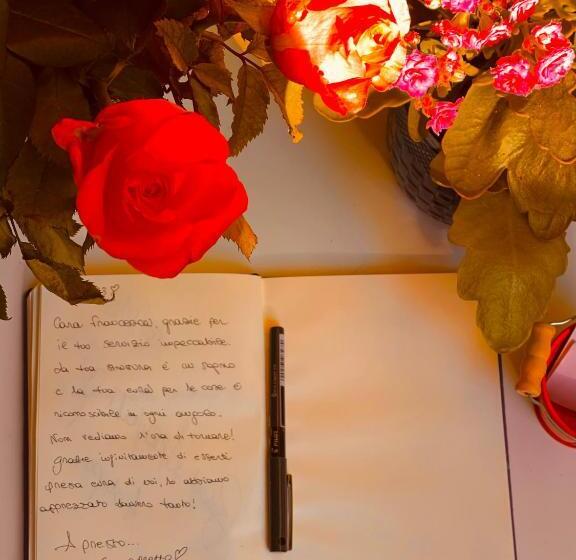 Cara Francesca, grazie per
il tuo servizio impeccabile.
La tua è un sogno
e la tua cura per le cose è
riconoscibile in ogni angolo.
Non vediamo l'ora di tornare!
Grazie infinitamente di esserti
presa cura di noi, lo abbiamo
apprezzato davvero tanto!
A presto...
PILOT